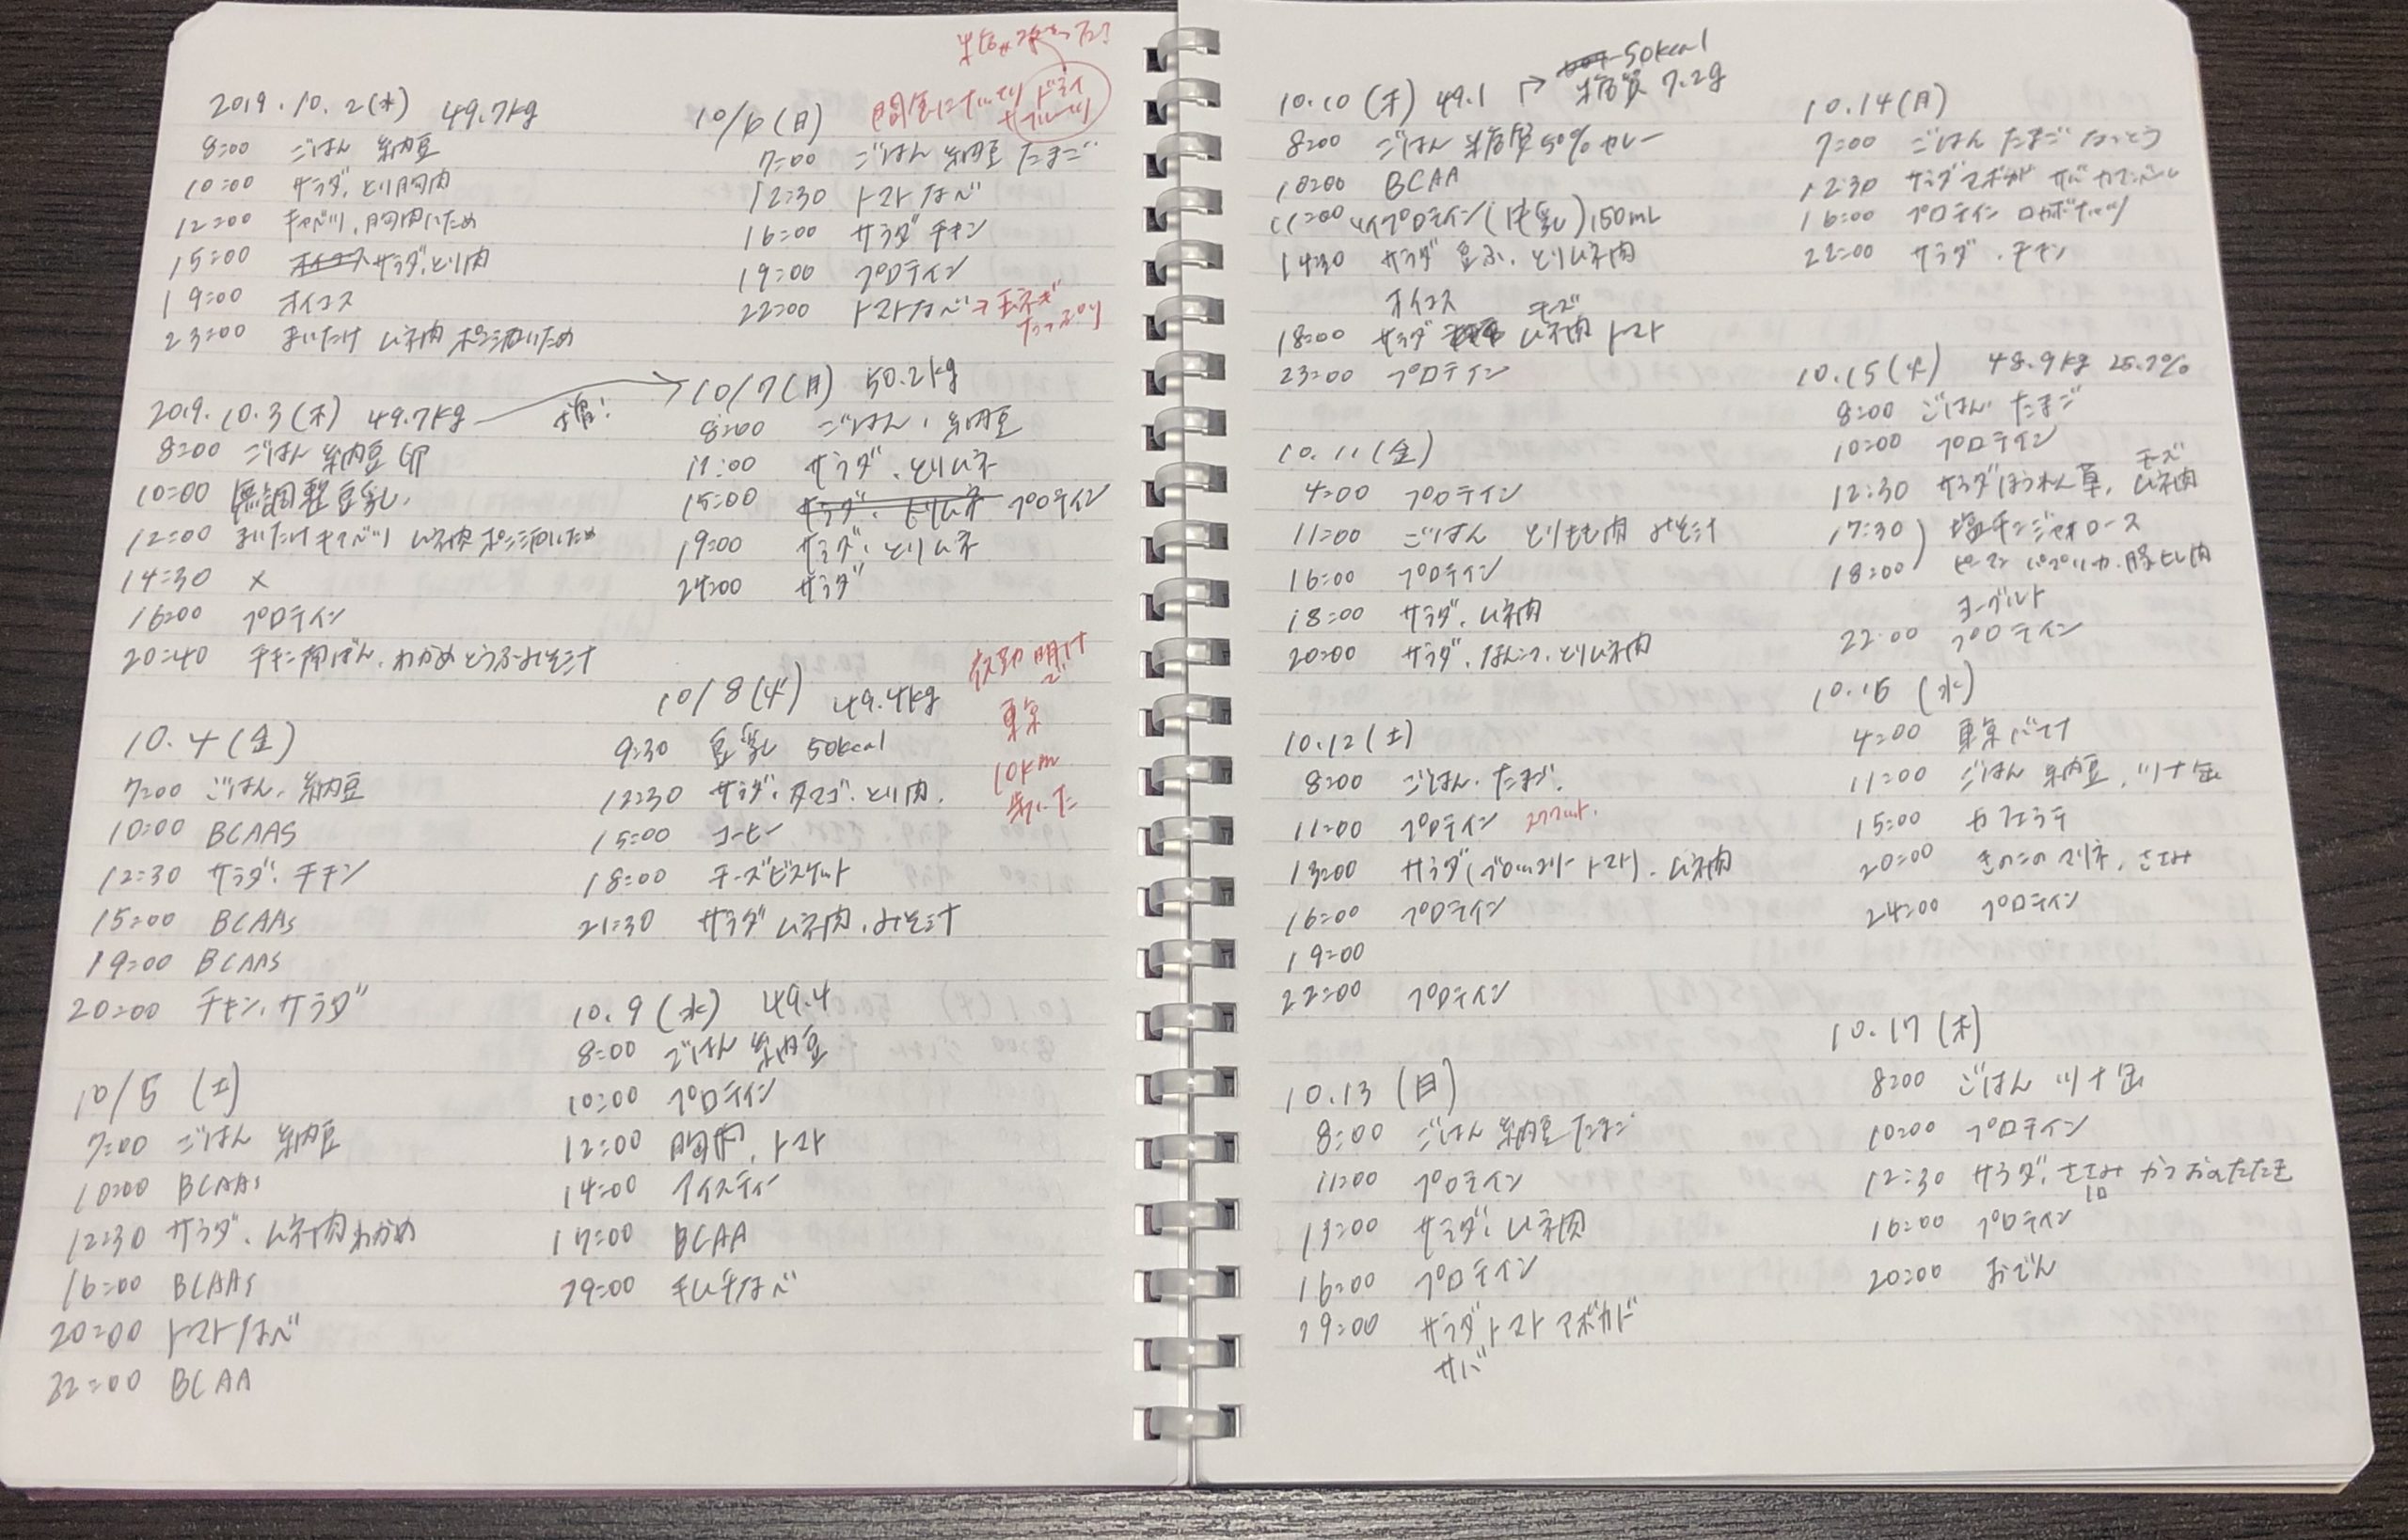 2019.10.2(水) 49.7kg
8:00 ごはん 納豆
10:00 サラダ、とり胸肉
12:00 キャベツ、胸肉いため
15:00 オイコス サラダ、とり肉
19:00 オイコス
23:00 まいたけ ムネ肉 ポン酢いため
2019.10.3(木) 49.7kg
増!
8:00 ごはん 納豆 卵
10:00 無調整豆乳、
12:00 まいたけキャベツ ムネ肉 ポン酢いため
14:30 ×
16:00 プロテイン
20:40 チキン南ばん、わかめとうふみそ汁
10.4(金)
7:00 ごはん、納豆
10:00 BCAAS
12:30 サラダ、チキン
15:00 BCAAs
19:00 BCAAS
20:00 チキン、サラダ
10/5 (土)
7:00 ごはん 納豆
10:00 BCAAs
12:30 サラダ、ムネ肉わかめ
16:00 BCAAs
20:00 トマトなべ
22:00 BCAA
10/6(日)
間食にナッツ
+ドライフルーツ
7:00 ごはん 納豆 たまご
12:30 トマトなべ
16:00 サラダチキン
19:00 プロテイン
22:00 トマトなべ→玉ネギ
たっぷり
10/7(月) 50.2kg
8:00 ごはん、納豆
11:00 サラダ、とりムネ
15:00 サラダ、とりムネ プロテイン
19:00 サラダ、とりムネ
24:00 サラダ
10/8(火) 49.4kg
夜勤明け
で
東京
10km
歩いた
9:30 豆乳 50kcal
12:30 サラダ、タマゴ、とり肉、
15:00 コーヒー
18:00 チーズビスケット
21:30 サラダ ムネ肉、みそ汁
10.9(水) 49.4
8:00 ごはん 納豆
10:00 プロテイン
12:00 胸肉、トマト
14:00 アイスティー
17:00 BCAA
19:00 キムチなべ
10.10(木) 49.1
50kcal
糖質 7.2g
8:00 ごはん 糖質50%カレー
10:00 BCAA
11:00 プロテイン(牛乳)150mL
14:30 サラダ 豆ふ、とりムネ肉
オイコス
18:00 サラダ チーズ ムネ肉 トマト
23:00 プロテイン
10.11(金)
4:00 プロテイン
11:00 ごはん とりもも肉 みそ汁
16:00 プロテイン
18:00 サラダ、ムネ肉
20:00 サラダ、とりムネ肉
10.12(土)
8:00 ごはん、たまご、
11:00 プロテイン スクワット、
13:00 サラダ(ブロッコリー トマト)、ムネ肉
16:00 プロテイン
19:00
22:00 プロテイン
10.13(日)
8:00 ごはん 納豆 たまご
11:00 プロテイン
13:00 サラダ、ムネ肉
16:00 プロテイン
19:00 サラダ トマト アボカド
サバ
10.14(月)
7:00 ごはん たまご なっとう
12:30 サラダ アボカド サバ
16:00 プロテイン ロカボナッツ
22:00 サラダ、チキン
10.15(火) 48.9kg 25.7%
8:00 ごはん、たまご
10:00 プロテイン
12:30 サラダほうれん草、チーズ ムネ肉
17:30 塩チンジャオロース
18:00 ピーマン パプリカ、豚ヒレ肉
ヨーグルト
22:00 プロテイン
10.16(水)
4:00 東京バナナ
11:00 ごはん 納豆、ツナ缶
15:00 カフェラテ
20:00 きのこのマリネ、ささみ
24:00 プロテイン
10.17(木)
8:00 ごはん ツナ缶
10:00 プロテイン
12:30 サラダ、ささみ かつおのたたき
16:00 プロテイン
20:00 おでん